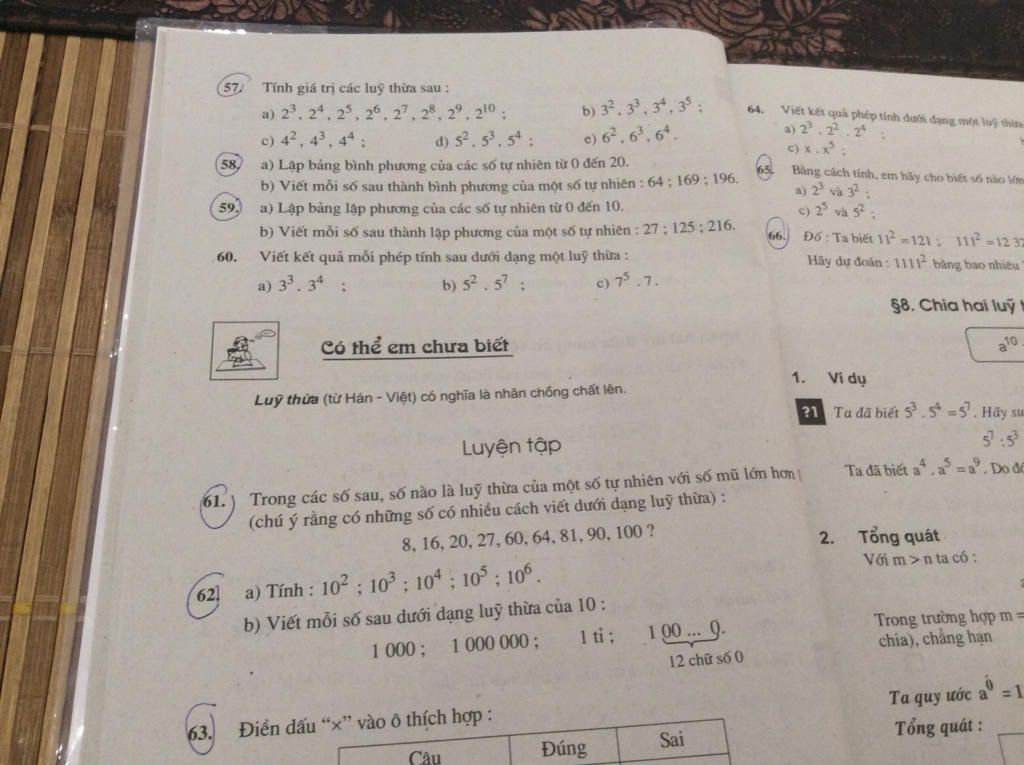 57. Tính giá trị các luỹ thừa sau :
a) 2³, 2⁴, 2⁵, 2⁶, 2⁷, 2⁸, 2⁹, 2¹⁰ ; b) 3², 3³, 3⁴, 3⁵ ;
c) 4², 4³, 4⁴ ; d) 5², 5³, 5⁴ ; e) 6², 6³, 6⁴.
58. a) Lập bảng bình phương của các số tự nhiên từ 0 đến 20.
b) Viết mỗi số sau thành bình phương của một số tự nhiên : 64 ; 169 ; 196.
59. a) Lập bảng lập phương của các số tự nhiên từ 0 đến 10.
b) Viết mỗi số sau thành lập phương của một số tự nhiên : 27 ; 125 ; 216.
60. Viết kết quả mỗi phép tính sau dưới dạng một luỹ thừa :
a) 3³ . 3⁴ ; b) 5² . 5⁷ ; c) 7⁵ . 7.
Có thể em chưa biết
Luỹ thừa (từ Hán - Việt) có nghĩa là nhân chồng chất lên.
Luyện tập
61. Trong các số sau, số nào là luỹ thừa của một số tự nhiên với số mũ lớn hơn
(chú ý rằng có những số có nhiều cách viết dưới dạng luỹ thừa) :
8, 16, 20, 27, 60, 64, 81, 90, 100 ?
62. a) Tính : 10² ; 10³ ; 10⁴ ; 10⁵ ; 10⁶.
b) Viết mỗi số sau dưới dạng luỹ thừa của 10 :
1 000 ; 1 000 000 ; 1 tỉ ; 1 00 ... 0.
12 chữ số 0
63. Điền dấu “×” vào ô thích hợp :
Câu Đúng Sai
64. Viết kết quả phép tính dưới dạng một luỹ thừa
a) 2³ . 2² . 2⁴ ;
c) x . x⁵ ;
65. Bằng cách tính, em hãy cho biết số nào lớn
a) 2³ và 3² ;
c) 2⁵ và 5² ;
66. Đố : Ta biết 11² = 121 ; 111² = 12 32
Hãy dự đoán : 1111² bằng bao nhiêu
§8. Chia hai luỹ
a¹⁰
1. Ví dụ
?1 Ta đã biết 5³ . 5⁴ = 5⁷. Hãy su
5⁷ : 5³
Ta đã biết a⁴ . a⁵ = a⁹. Do đó
2. Tổng quát
Với m > n ta có :
Trong trường hợp m =
chia), chẳng hạn
Ta quy ước a⁰ = 1
Tổng quát :